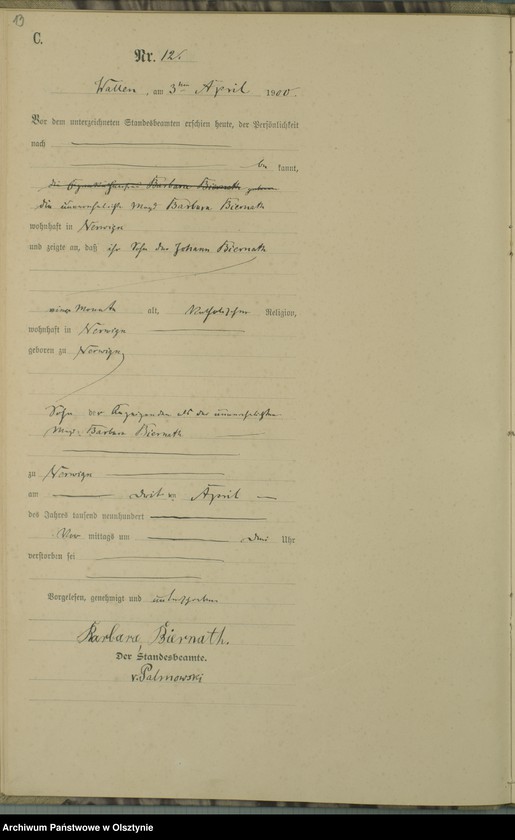 19
C.
Nr. 12.
Wallen, am 3ten April 1900.
Vor dem unterzeichneten Standesbeamten erschien heute, der Persönlichkeit
nach
be kannt,
die Barbara Biernath
die unverehelichte Magd Barbara Biernath
wohnhaft in
und zeigte an, daß ihr Sohn der Johann Biernath
einen Monat alt, katholischer Religion,
wohnhaft in
geboren zu
Sohn der Anzeigenden als der unverehelichten
Magd Barbara Biernath
zu
am dritten April
des Jahres tausend neunhundert
Vor mittags um drei Uhr
verstorben sei
Vorgelesen, genehmigt und unterschrieben
Barbara Biernath.
Der Standesbeamte.
v. Palmowski
Archiwum Państwowe w Olsztynie